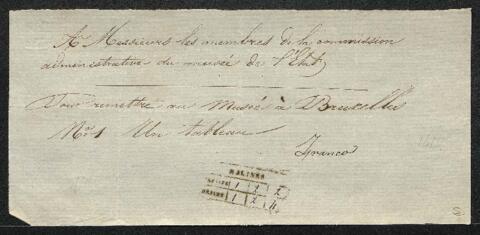 A Messieurs les membres de la commission
administrative du musée de l'Etat,
Pour remettre au Musée à Bruxelles
No 1 Un tableau
Franco
MALINES
1 2 2
1 2 4